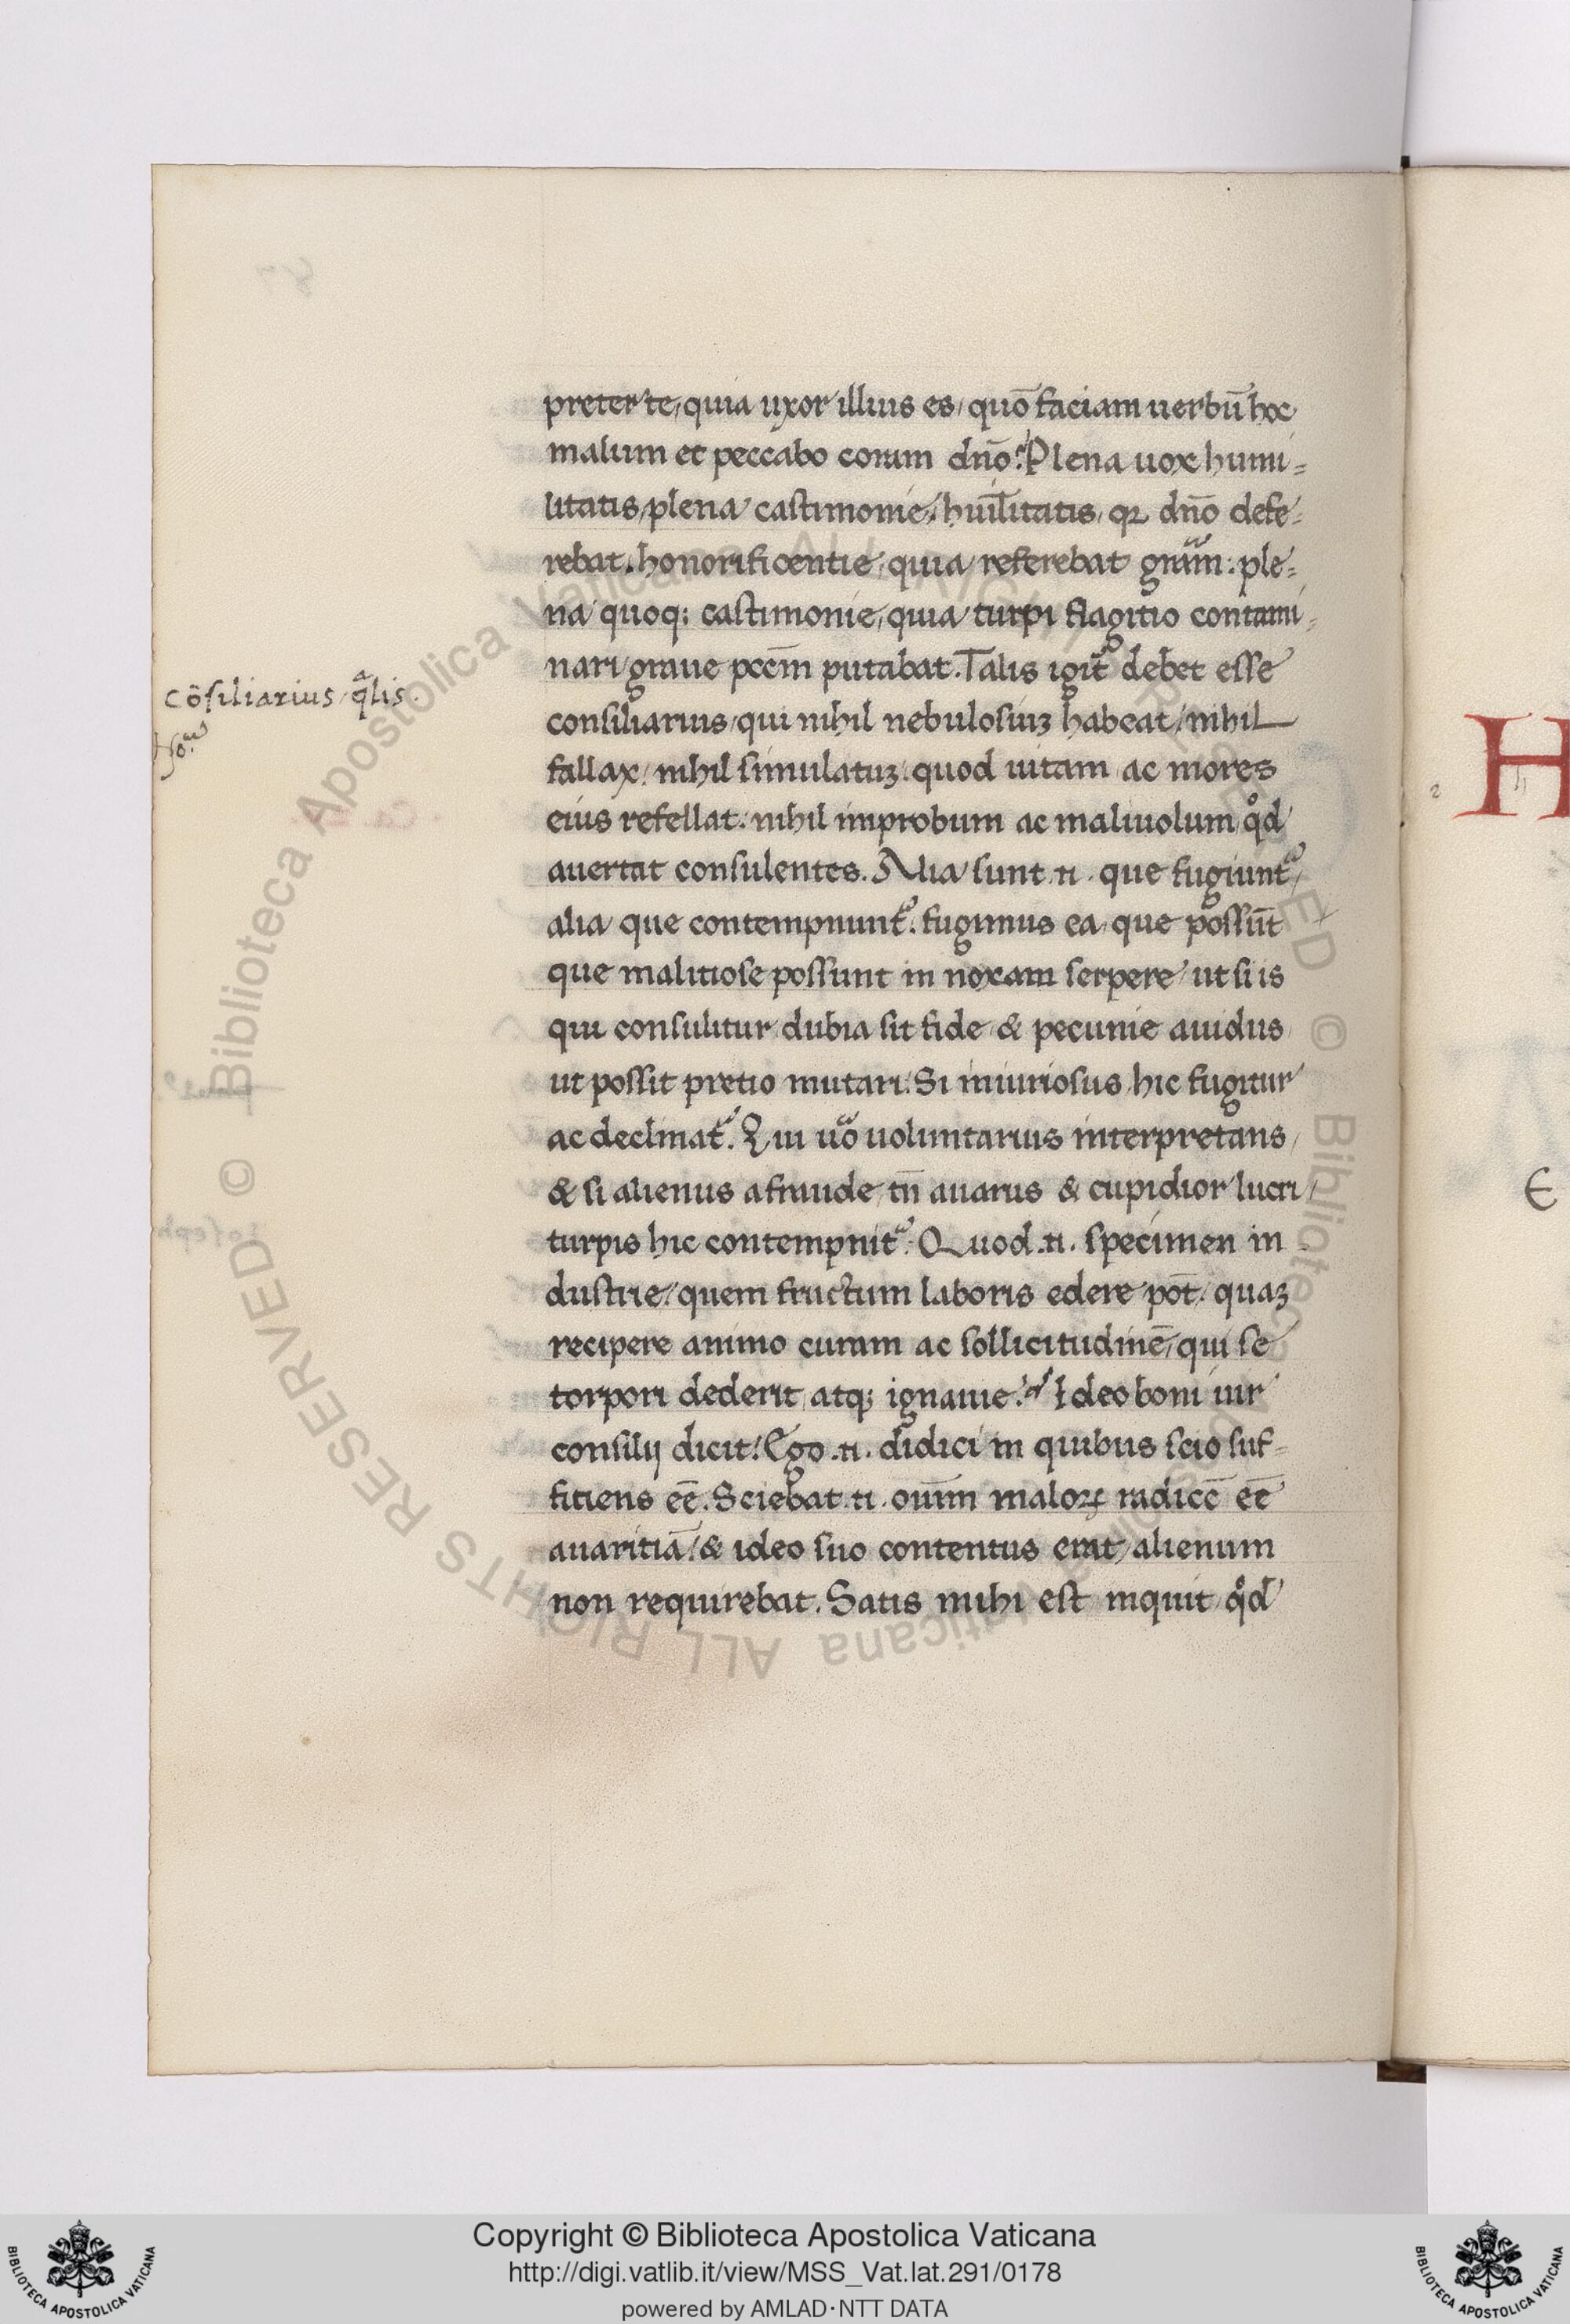 preter te, quia uxor illius es, quō faciam uerbū hoc
malum et peccabo coram dn̄o? Plena uox humi=
litatis, plena castimonie, hui̅litatis, qꝛ dn̄o defe=
rebat. honorificentie, quia referebat gr̄am: ple=
na quoq; castimonie, quia turpi flagitio contami=
nari graue pcc̄m putabat. Talis igit᷑ debet esse
cōsiliarius q̄lis.
consiliarius, qui nihil nebulosuꝫ habeat, nihil
fallax, nihil simulatuꝫ. quod uitam ac mores
eius refellat. nihil improbum ac maliuolum qͦd
auertat consulentes. Alia sunt .n. que fugiunt᷑,
alia que contempnunt᷑. fugimus ea, que possūt
que malitiose possunt in noxam serpere, ut si is
qui consulitur dubia sit fide & pecunie auidus
ut possit pretio mutari. Si iniuriosus, hic fugitur
ac declinat᷑. Qui uͦo uoluntarius interpretans,
& si alienus a fraude, tn̄ auarus & cupidior lucri,
turpis hic contempnit᷑. Quod .n. specimen in
dustrie, quem fructum laboris edere pōt, quaꝫ
recipere animo curam ac sollicitudinē, qui se
torpori dederit, atq; ignauie? Ideo boni uir
consilij dicit. Ego .n. didici in quibus scio suf=
fitiens eē. Sciebat .n. oīum maloꝝ radicē eē
auaritiā, & ideo suo contentus erat, alienum
non requirebat. Satis mihi est inquit, qͦd
H
E
Copyright © Biblioteca Apostolica Vaticana
http://digi.vatlib.it/view/MSS_Vat.lat.291/0178
powered by AMLAD·NTT DATA
BIBLIOTECA APOSTOLICA VATICANA
BIBLIOTECA APOSTOLICA VATICANA
© Biblioteca Apostolica Vaticana ALL RIGHTS RESERVED © Biblioteca Apostolica Vaticana ALL RIGHTS RESERVED